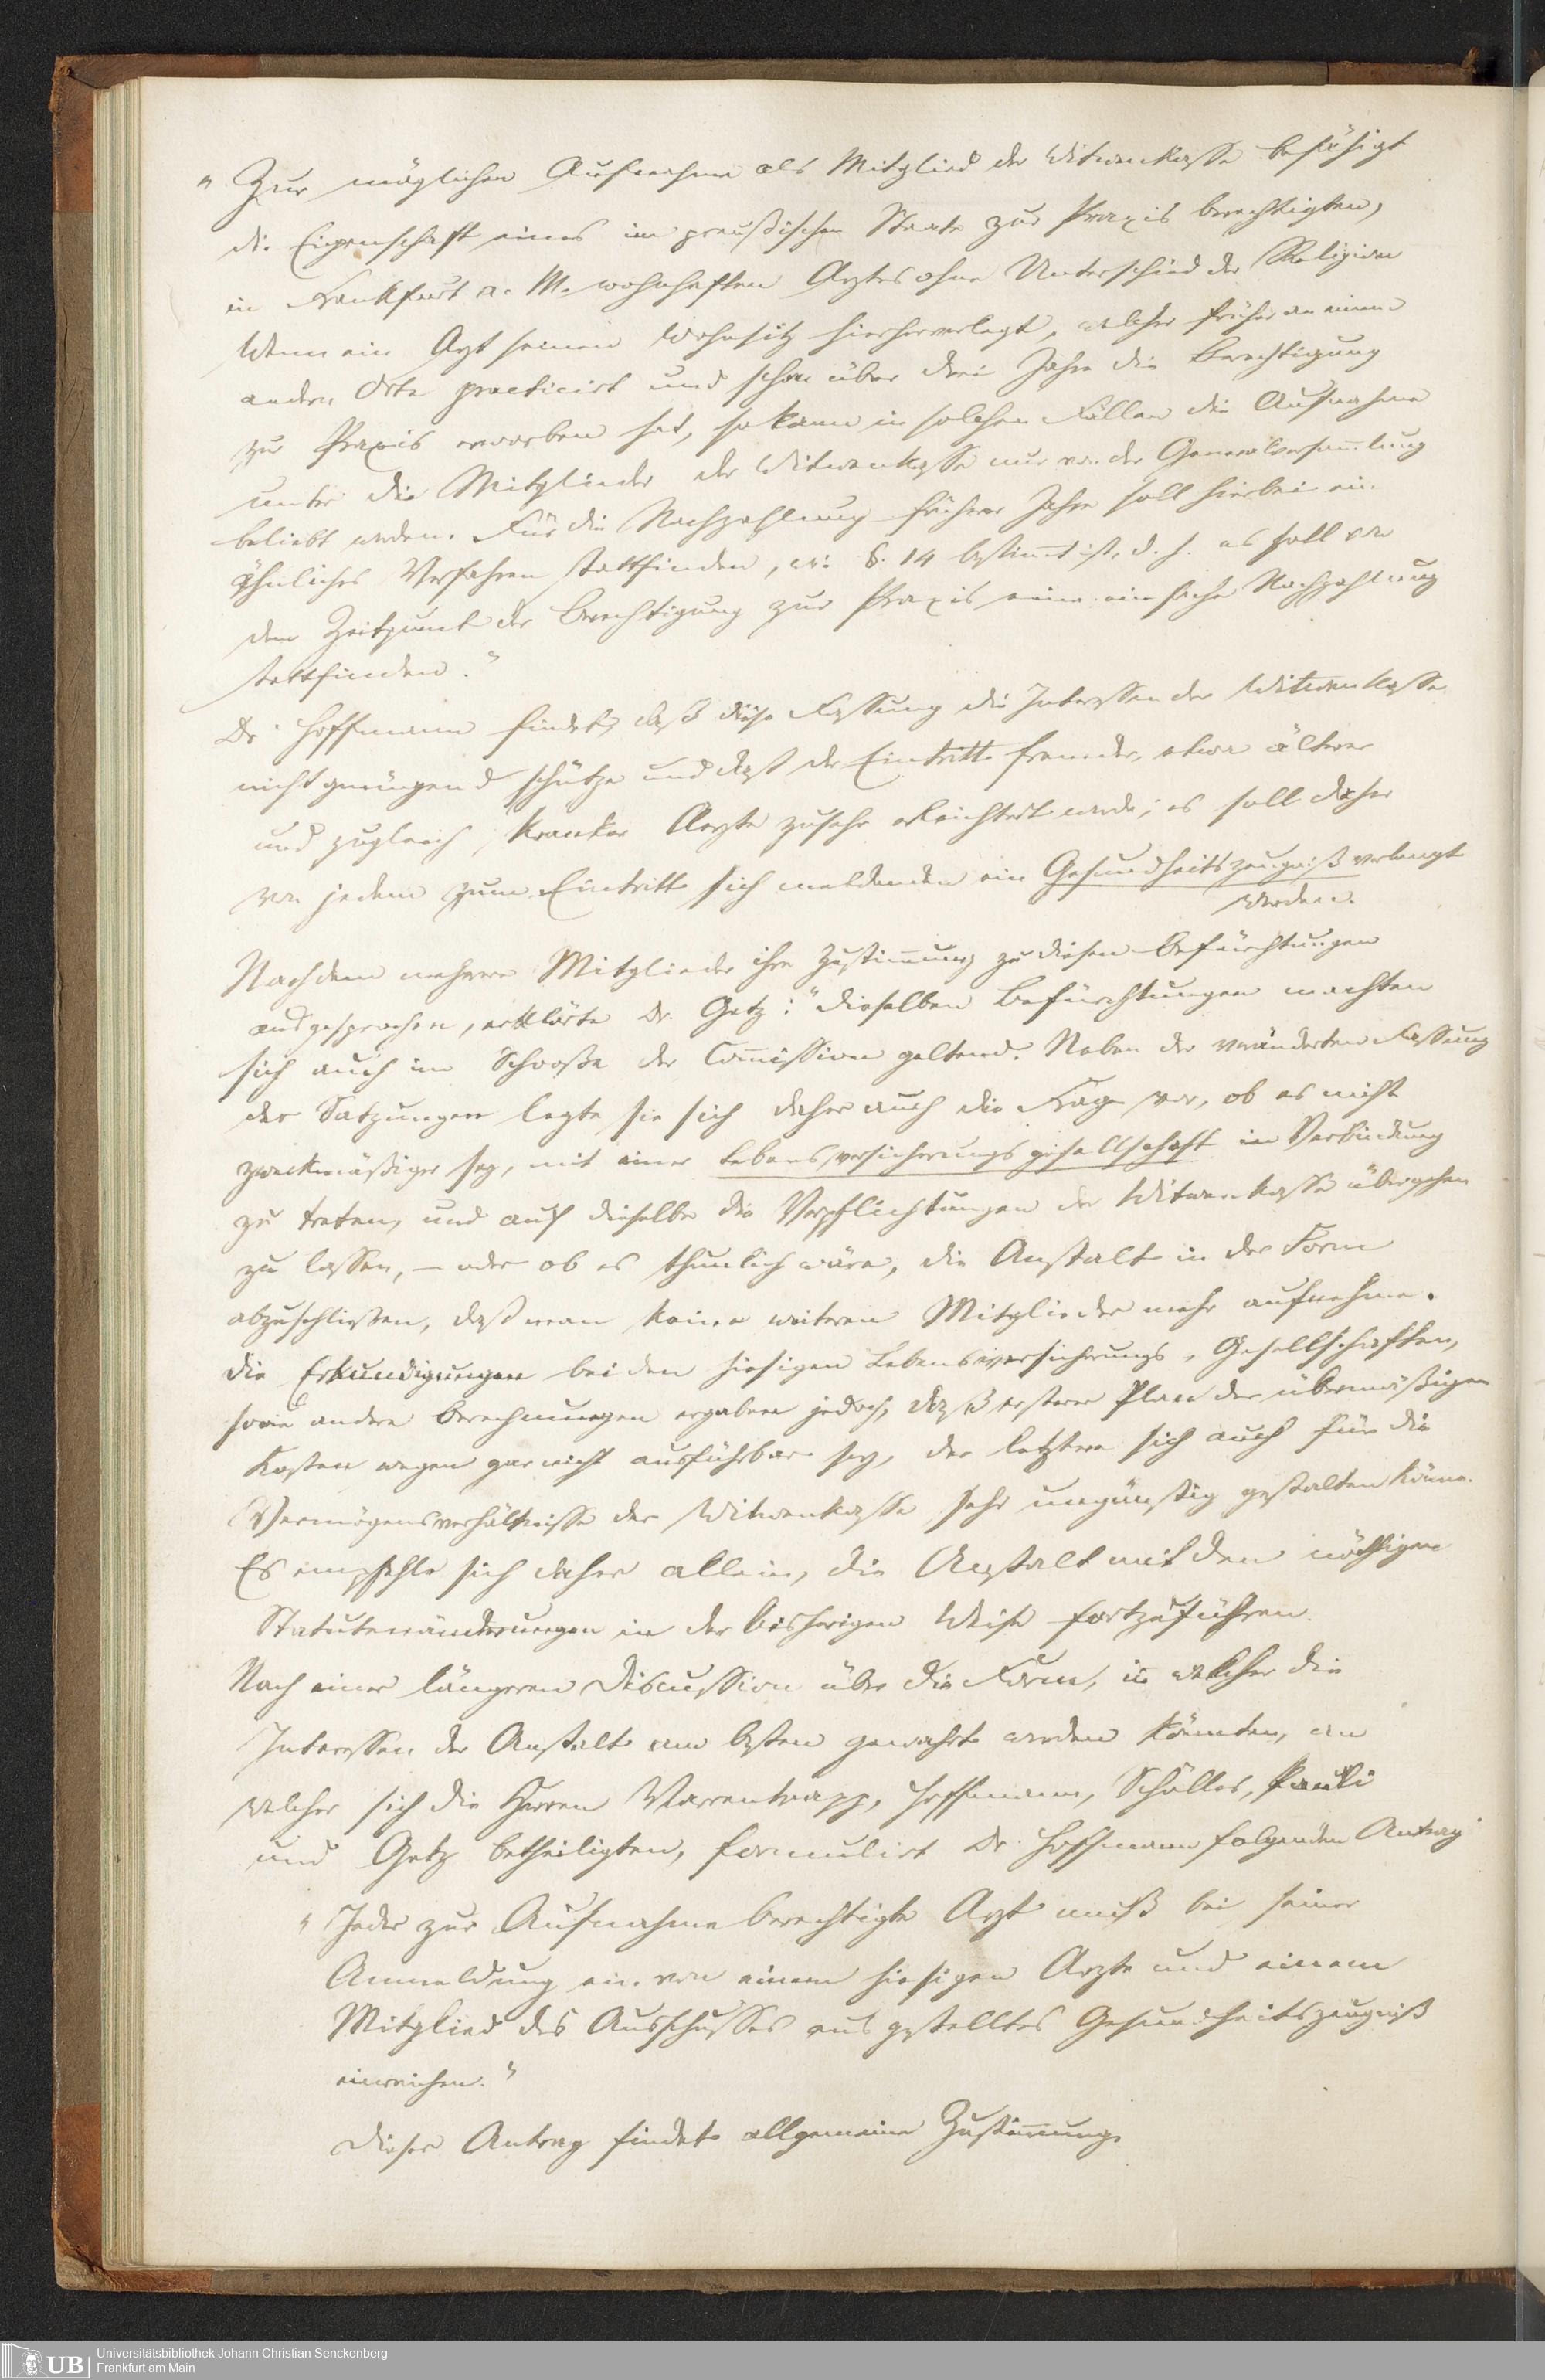 „Zur möglichen Aufnahme als Mitglied der Witwenkasse befähigt
die Eigenschaft eines im preußischen Staate zur Praxis berechtigten,
in Frankfurt a. M. wohnhaften Arztes ohne Unterschied der Religion
Wenn ein Arzt seinen Wohnsitz hierherverlegt, welcher früher an einem
andern Orte practicirt und schon über drei Jahre die Berechtigung
zur Praxis erworben hat, so kann in solchen Fällen die Aufnahme
unter die Mitglieder der Witwenkasse nur von der Generalversam̅lung
beliebt werden. Für die Nachzahlung früherer Jahre soll hierbei ein
ähnliches Verfahren stattfinden, wie §. 14 bestim̅t ist, d. h. es soll von
dem Zeitpunct der Berechtigung zur Praxis eine einfache Nachzahlung
stattfinden.“
Dr. Hoffmann findet, daß diese Fassung die Interessen der Witwenkasse
nicht genügend schütze und daß der Eintritt fremder, etwa älterer
und zugleich kranker Aerzte zusehr erleichtert werde; es soll daher
von jedem zum Eintritt sich meldenden ein Gesundheitszeugniß verlangt
werden.
Nachdem mehrere Mitglieder ihre Zustim̅ung zu diesen Befürchtungen
ausgesprochen, erklärte Dr. Getz: „dieselben Befürchtungen machten
sich auch im Schooße der Com̅ission geltend. Neben der veränderten Fassung
der Satzungen legte sie sich daher auch die Frage vor, ob es nicht
zweckmäßiger sey, mit einer Lebensversicherungsgesellschaft in Verbindung
zu treten, und auf dieselbe die Verpflichtungen der Witwenkasse übergehen
zu lassen, – oder ob es thunlich wäre, die Anstalt in der Form
abzuschließen, daß man keine weiteren Mitglieder mehr aufnehme.
Die Erkundigungen bei den hiesigen Lebensversicherungs-Gesellschaften,
sowie andere Berechnungen ergaben jedoch, daß ersterer Plan der übermäßigen
Kosten wegen gar nicht ausführbar sey, der letztere sich auch für die
Vermögensverhältnisse der Witwenkasse sehr ungünstig gestalten könne.
Es empfehle sich daher allein, die Anstalt mit den nöthigen
Statutenänderungen in der bisherigen Weise fortzuführen.
Nach einer längeren Discussion über die Form, in welcher die
Interessen der Anstalt am besten gewahrt werden könnten, an
welcher sich die Herren Varrentrapp, Hoffmann, Schölles, Pauli
und Getz betheiligten, formulirt Dr. Hoffmann folgenden Antrag
„Jeder zur Aufnahme berechtigte Arzt muß bei seiner
Anmeldung ein von einem hiesigen Arzte und einem
Mitglied des Ausschusses ausgestelltes Gesundheitszeugniß
einreichen.“
Dieser Antrag findet allgemeine Zustim̅ung.
UB
Universitätsbibliothek Johann Christian Senckenberg
Frankfurt am Main